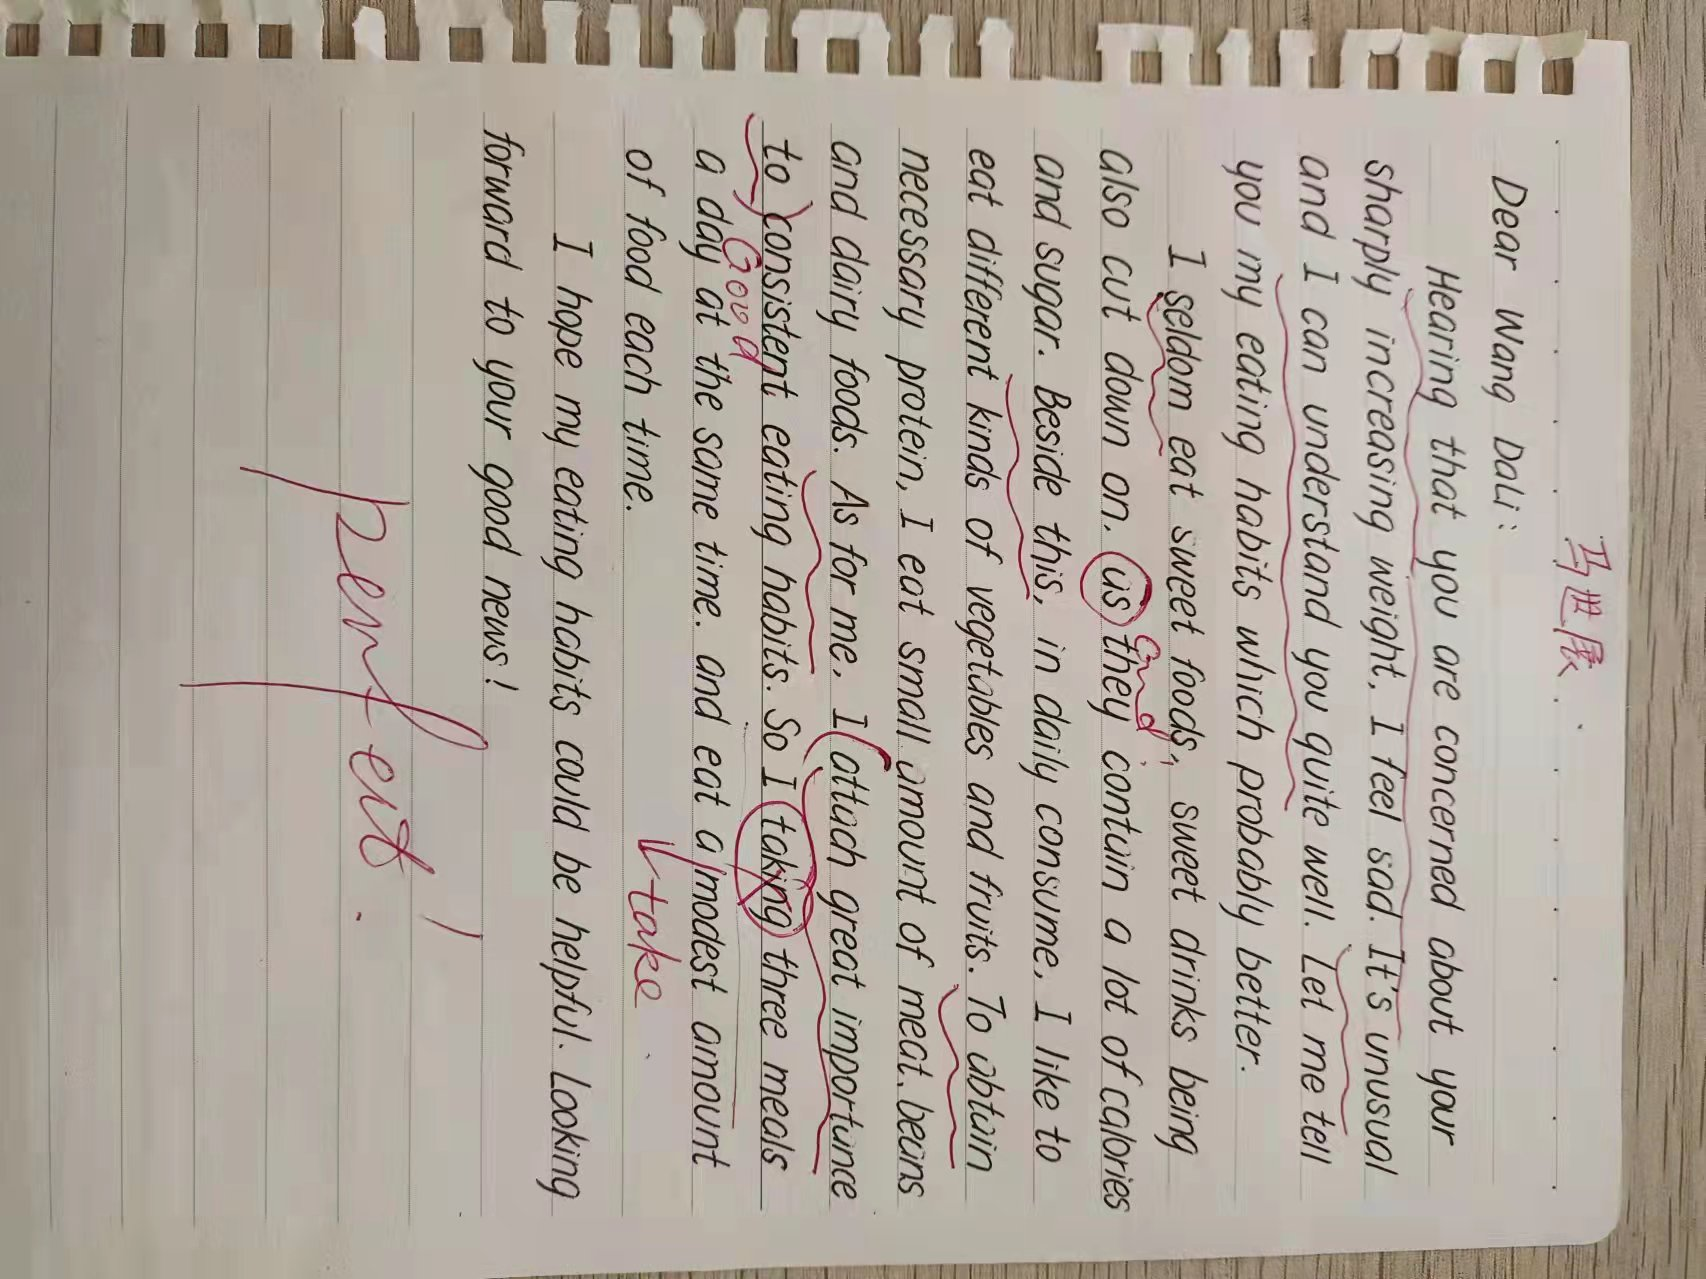 马进展
Dear Wang Dali:
Hearing that you are concerned about your
sharply increasing weight, I feel sad. It's unusual
and I can understand you quite well. Let me tell
you my eating habits which probably better.
I seldom eat sweet foods, sweet drinks being
and
also cut down on. as they contain a lot of calories
and sugar. Beside this, in daily consume, I like to
eat different kinds of vegetables and fruits. To abtain
necessary protein, I eat small amount of meat. beans
and dairy foods. As for me, I attach great importance
to consistent eating habits. So I taking three meals
Good
a day at the same time. and eat a modest amount
take
of food each time.
I hope my eating habits could be helpful. Looking
forward to your good news!
perfect!